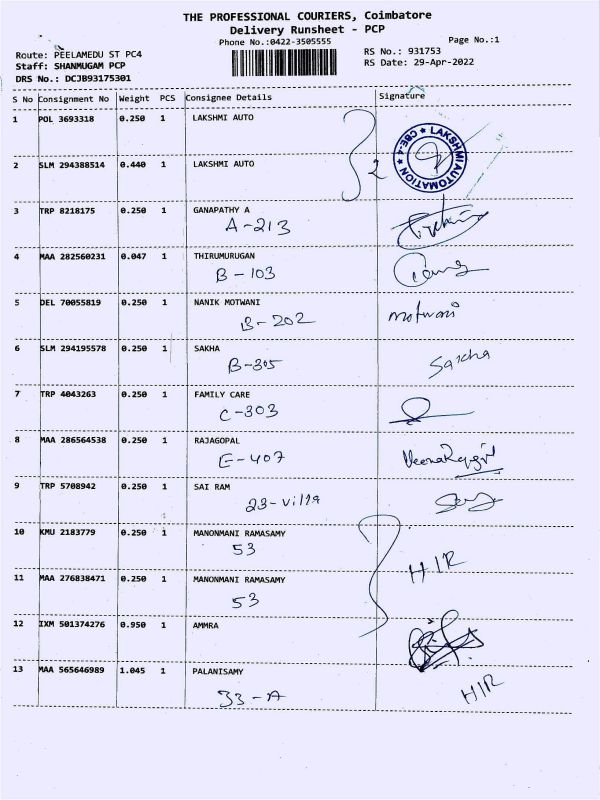 THE PROFESSIONAL COURIERS, Coimbatore
Delivery Runsheet - PCP
Phone No.:0422-3505555
Page No.:1
Route: PEELAMEDU ST PC4
RS No.: 931753
Staff: SHANMUGAM PCP
RS Date: 29-Apr-2022
DRS No.: DCJB93175301
S No Consignment No Weight PCS Consignee Details Signature
1 POL 3693318 0.250 1 LAKSHMI AUTO
2
LAKSHMI AUTOMATION ★ CBE-4 ★
2 SLM 294388514 0.440 1 LAKSHMI AUTO
3 TRP 8218175 0.250 1 GANAPATHY A
A-213
4 MAA 282560231 0.047 1 THIRUMURUGAN
B-103
5 DEL 70055819 0.250 1 NANIK MOTWANI
B-202 motwani
6 SLM 294195578 0.250 1 SAKHA
B-305 Sakha
7 TRP 4043263 0.250 1 FAMILY CARE
C-303
8 MAA 286564538 0.250 1 RAJAGOPAL
E-407
9 TRP 5708942 0.250 1 SAI RAM
23-villa
10 KMU 2183779 0.250 1 MANONMANI RAMASAMY
53
HIR
11 MAA 276838471 0.250 1 MANONMANI RAMASAMY
53
12 IXM 501374276 0.950 1 AMMRA
13 MAA 565646989 1.045 1 PALANISAMY
33-A HIR